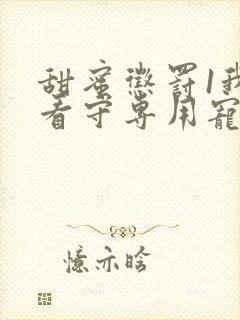 甜蜜懲罰1我
看守專用寵
憶亦晗